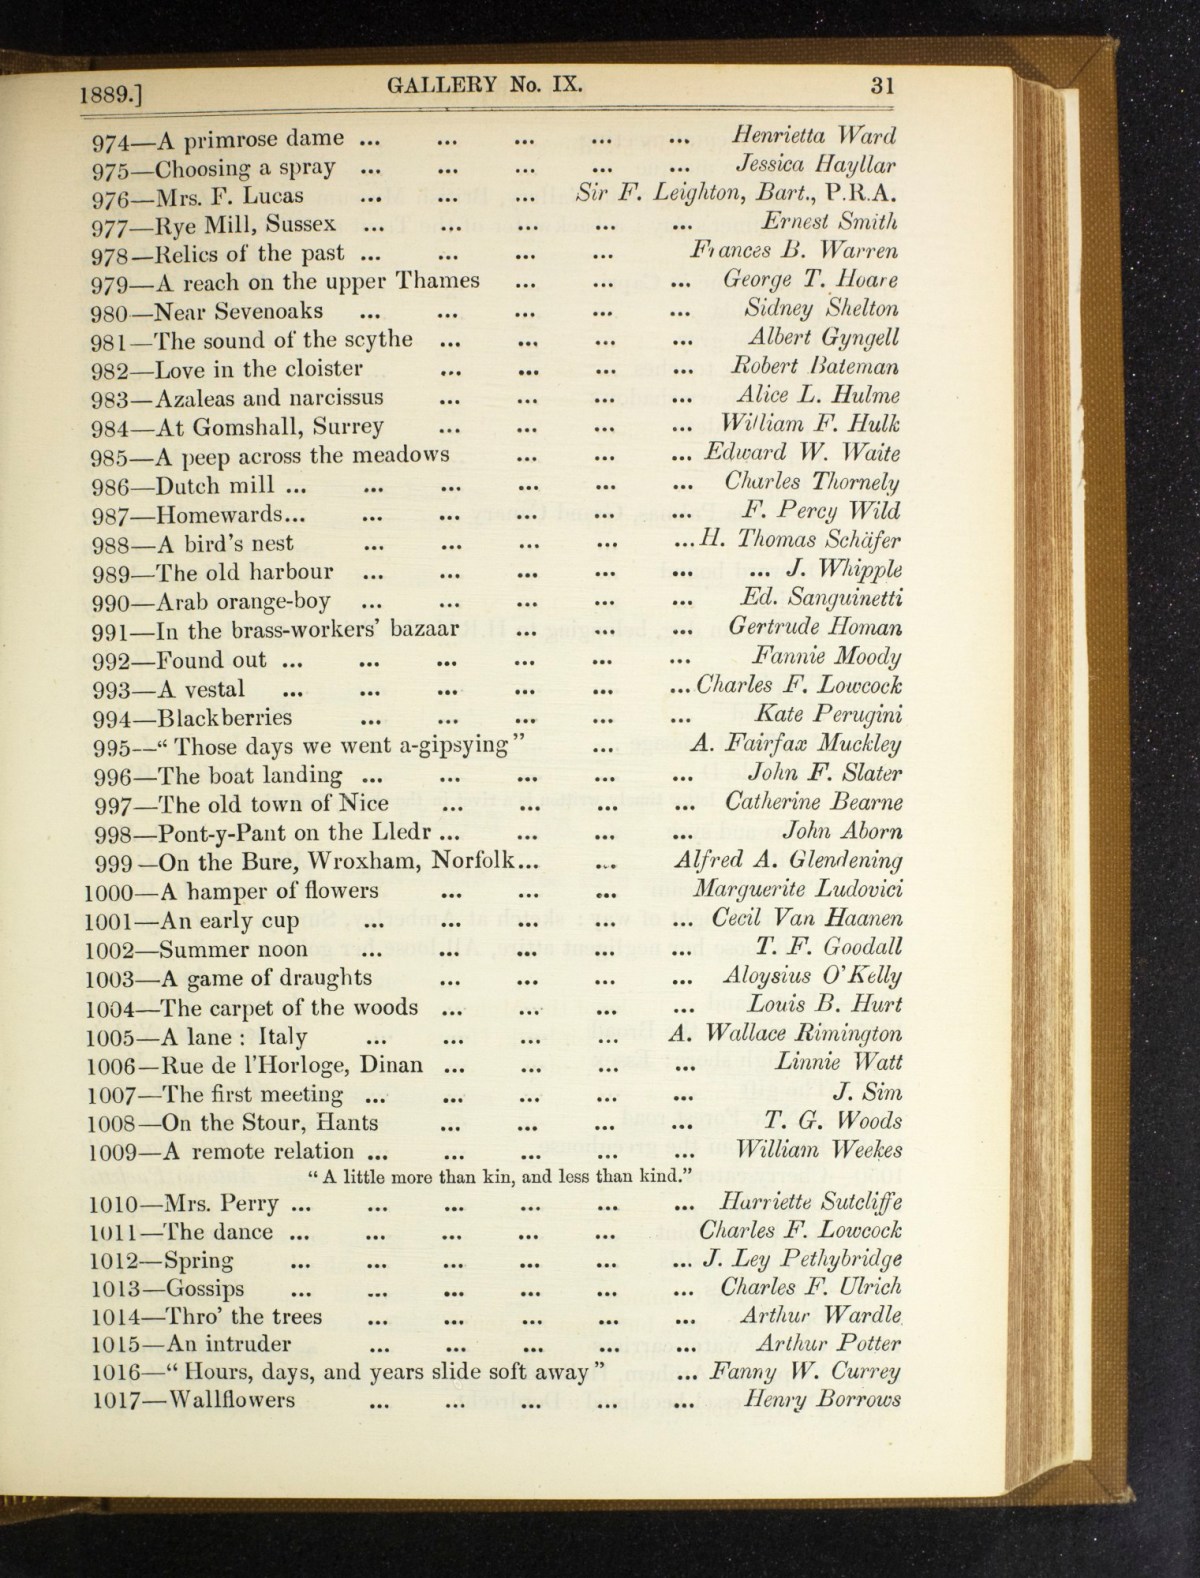 1889.] GALLERY No. IX. 31
974—A primrose dame ... ... ... ... ... Henrietta Ward
975—Choosing a spray ... ... ... ... ... Jessica Hayllar
976—Mrs. F. Lucas ... ... ... Sir F. Leighton, Bart., P.R.A.
977—Rye Mill, Sussex ... ... ... ... ... Ernest Smith
978—Relics of the past ... ... ... ... Frances B. Warren
979—A reach on the upper Thames ... ... ... George T. Hoare
980—Near Sevenoaks ... ... ... ... ... Sidney Shelton
981—The sound of the scythe ... ... ... ... Albert Gyngell
982—Love in the cloister ... ... ... ... Robert Bateman
983—Azaleas and narcissus ... ... ... ... Alice L. Hulme
984—At Gomshall, Surrey ... ... ... ... William F. Hulk
985—A peep across the meadows ... ... ... Edward W. Waite
986—Dutch mill ... ... ... ... ... ... Charles Thornely
987—Homewards... ... ... ... ... ... F. Percy Wild
988—A bird's nest ... ... ... ... ... H. Thomas Schäfer
989—The old harbour ... ... ... ... ... ... J. Whipple
990—Arab orange-boy ... ... ... ... ... Ed. Sanguinetti
991—In the brass-workers' bazaar ... ... ... Gertrude Homan
992—Found out ... ... ... ... ... ... Fannie Moody
993—A vestal ... ... ... ... ... ... Charles F. Lowcock
994—Blackberries ... ... ... ... ... Kate Perugini
995—“ Those days we went a-gipsying” ... A. Fairfax Muckley
996—The boat landing ... ... ... ... ... John F. Slater
997—The old town of Nice ... ... ... ... Catherine Bearne
998—Pont-y-Pant on the Lledr ... ... ... ... John Aborn
999—On the Bure, Wroxham, Norfolk... ... Alfred A. Glendening
1000—A hamper of flowers ... ... ... Marguerite Ludovici
1001—An early cup ... ... ... ... ... Cecil Van Haanen
1002—Summer noon ... ... ... ... ... T. F. Goodall
1003—A game of draughts ... ... ... ... Aloysius O'Kelly
1004—The carpet of the woods ... ... ... ... Louis B. Hurt
1005—A lane : Italy ... ... ... ... A. Wallace Rimington
1006—Rue de l'Horloge, Dinan ... ... ... ... Linnie Watt
1007—The first meeting ... ... ... ... ... J. Sim
1008—On the Stour, Hants ... ... ... ... T. G. Woods
1009—A remote relation ... ... ... ... ... William Weekes
“ A little more than kin, and less than kind.”
1010—Mrs. Perry ... ... ... ... ... ... Harriette Sutcliffe
1011—The dance ... ... ... ... ... Charles F. Lowcock
1012—Spring ... ... ... ... ... ... J. Ley Pethybridge
1013—Gossips ... ... ... ... ... ... Charles F. Ulrich
1014—Thro' the trees ... ... ... ... ... Arthur Wardle
1015—An intruder ... ... ... ... ... Arthur Potter
1016—“ Hours, days, and years slide soft away” ... Fanny W. Currey
1017—Wallflowers ... ... ... ... ... Henry Borrows